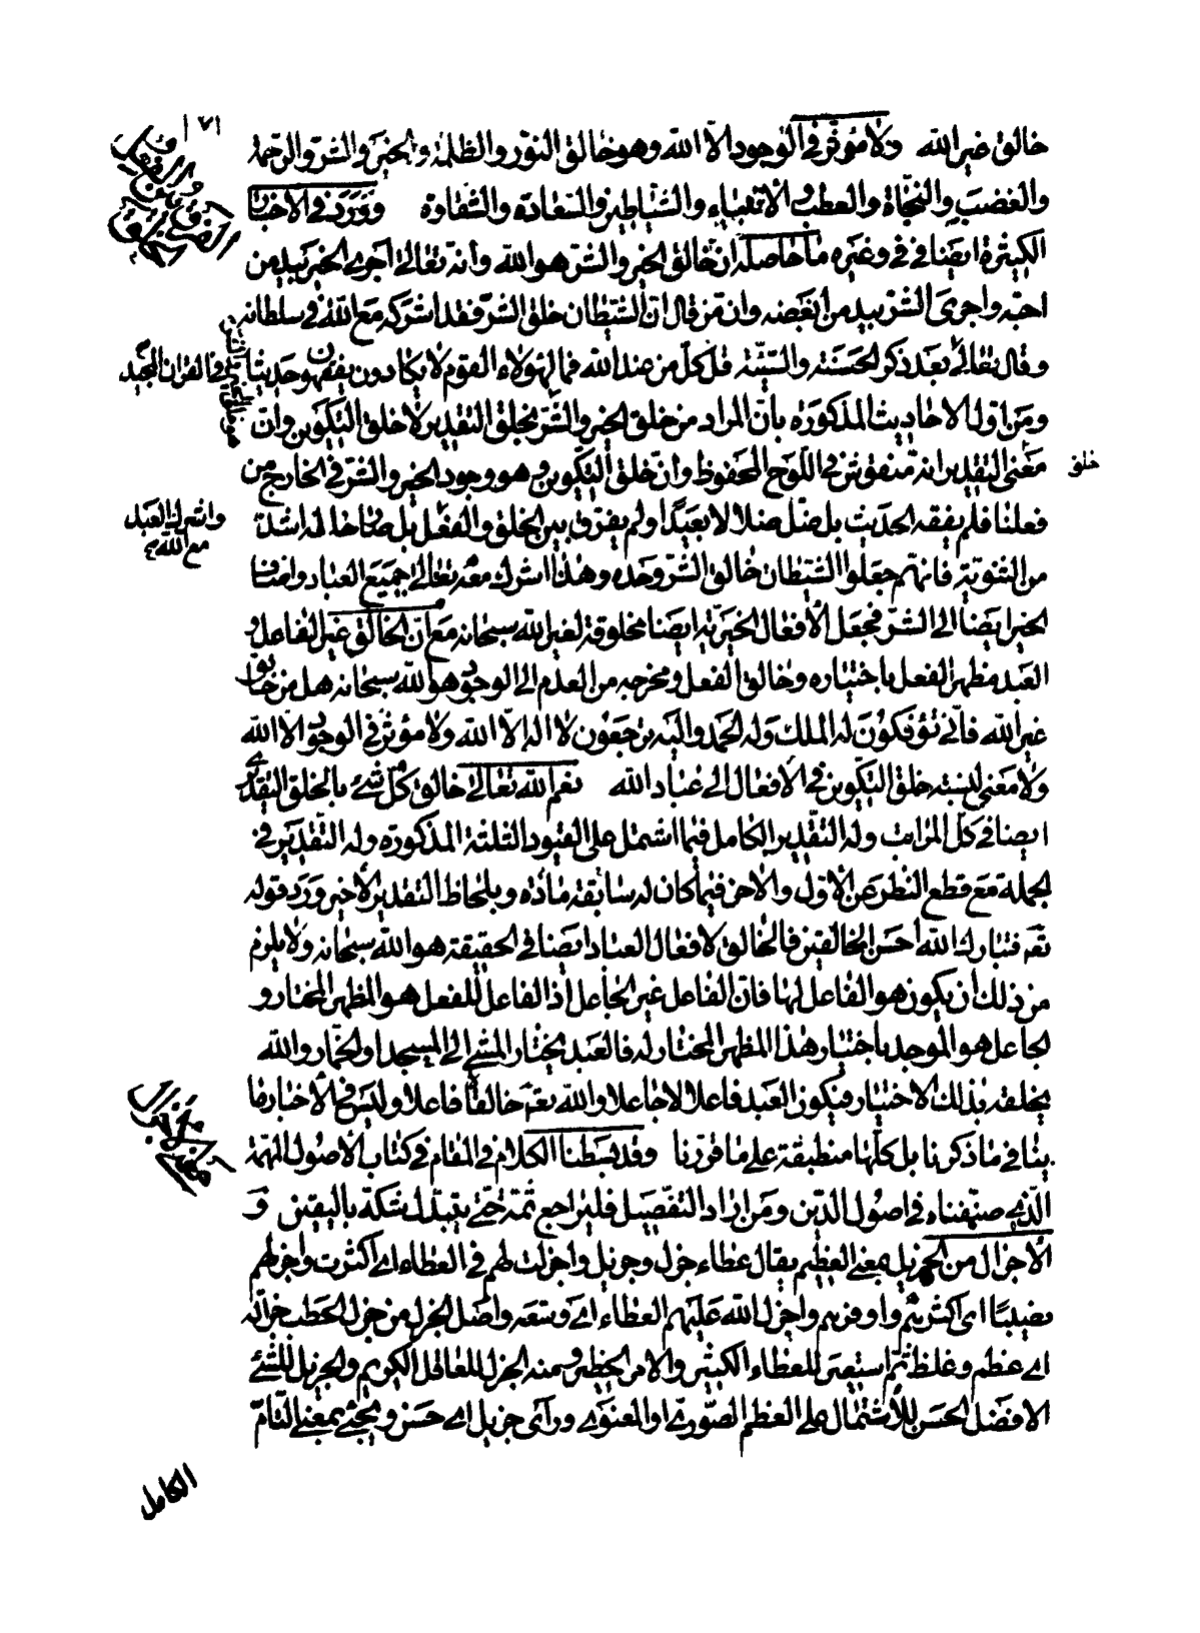 ١٧١
خالق غير الله ولا مؤثر فى الوجود الا الله وهو خالق النور والظلمة والخير والشر والرحمة
والغضب والنجاة والعطب والاتقياء والشياطين والسعادة والشقاوة وورد فى الاخبار
الكثيرة ايضا فى وغيره ما حاصله ان خالق الخير والشر هو الله وانه تعالى اجرى الخير بيد من
احبه واجرى الشر بيد من ابغضه وان من قال ان الشيطان خلق الشر فقد اشركه مع الله فى سلطانه
وقال تعالى بعد ذكر الحسنة والسيئة قل كل من عند الله فما لهؤلاء القوم لا يكادون يفقهون حديثا فى القران المجيد
ومن اول الاحاديث المذكورة بان المراد من خلق الخير والشر خلق التقدير لا خلق التكوين وان
خلق
معنى التقدير انه منقوش فى اللوح المحفوظ وان خلق التكوين وهو وجود الخير والشر فى الخارج من
فعلنا فلم يفقه الحديث بل ضل ضلالا بعيدا ولم يفرق بين الخلق والفعل بل صار حاله اشد
واشرك العبد
مع الله
من الثنوية فانهم جعلوا الشيطان خالق الشر وحده وهذا اشرك معه تعالى جميع العباد واضاف
الخير ايضا الى الشر فجعل الافعال الخيرية ايضا مخلوقة لغير الله سبحانه مع ان الخالق غير الفاعل و
العبد مظهر الفعل باختياره وخالق الفعل ومخرجه من العدم الى الوجود هو الله سبحانه هل من خالق
غير الله فانى تؤفكون له الملك وله الحمد واليه ترجعون لا اله الا الله ولا مؤثر فى الوجود الا الله
ولا معنى لنسبة خلق التكوين فى الافعال الى عباد الله نعم الله تعالى خالق كل شئ بالخلق التقديرى
ايضا فى كل المراتب وله التقدير الكامل فيما اشتمل على القيود الثلثة المذكورة وله التقدير فى
الجملة مع قطع النظر عن الاول والاخر فيما كان له سابقة مادة وبلحاظ التقدير الاخير ورد قوله
تعالى فتبارك الله احسن الخالقين فالخالق لافعال العباد ايضا فى الحقيقة هو الله سبحانه ولا يلزم
من ذلك ان يكون هو الفاعل لها فان الفاعل غير الجاعل اذ الفاعل للفعل هو المظهر المختار و
الجاعل هو الموجد باختيار هذا المظهر المختار له فالعبد يختار المشى الى المسجد او الخمار والله
يخلقه بذلك الاختيار فيكون العبد فاعلا لا جاعلا والله تعالى خالقا لا فاعلا وليس فى الاخبار ما
ينافى ما ذكرنا بل كلها منطبقة على ما قررنا وقد بسطنا الكلام فى المقام فى كتاب الاصول المهمة
الذى صنفناه فى اصول الدين ومن اراد التفصيل فليراجع ثمة حتى يتبدل شكه باليقين و
الاجزال من الجزيل بمعنى العظيم يقال عطاء جزل وجزيل واجزلت لهم فى العطاء اى اكثرت واجزلهم
نصيبا اى اكثرهم واوفرهم واجزل الله عليهم العطاء اى وسعه واصل الجزل من جزل الحطب جزالة
اى عظم وغلظ ثم استعير للعطاء الكثير والامر الخطير ومنه الجزل للعاقل الكريم والجزيل للشئ
الافضل الحسن للاشتمال على العظم الصورى او المعنوى ورأى جزيل اى حسن ويجئ بمعنى التام
الكامل